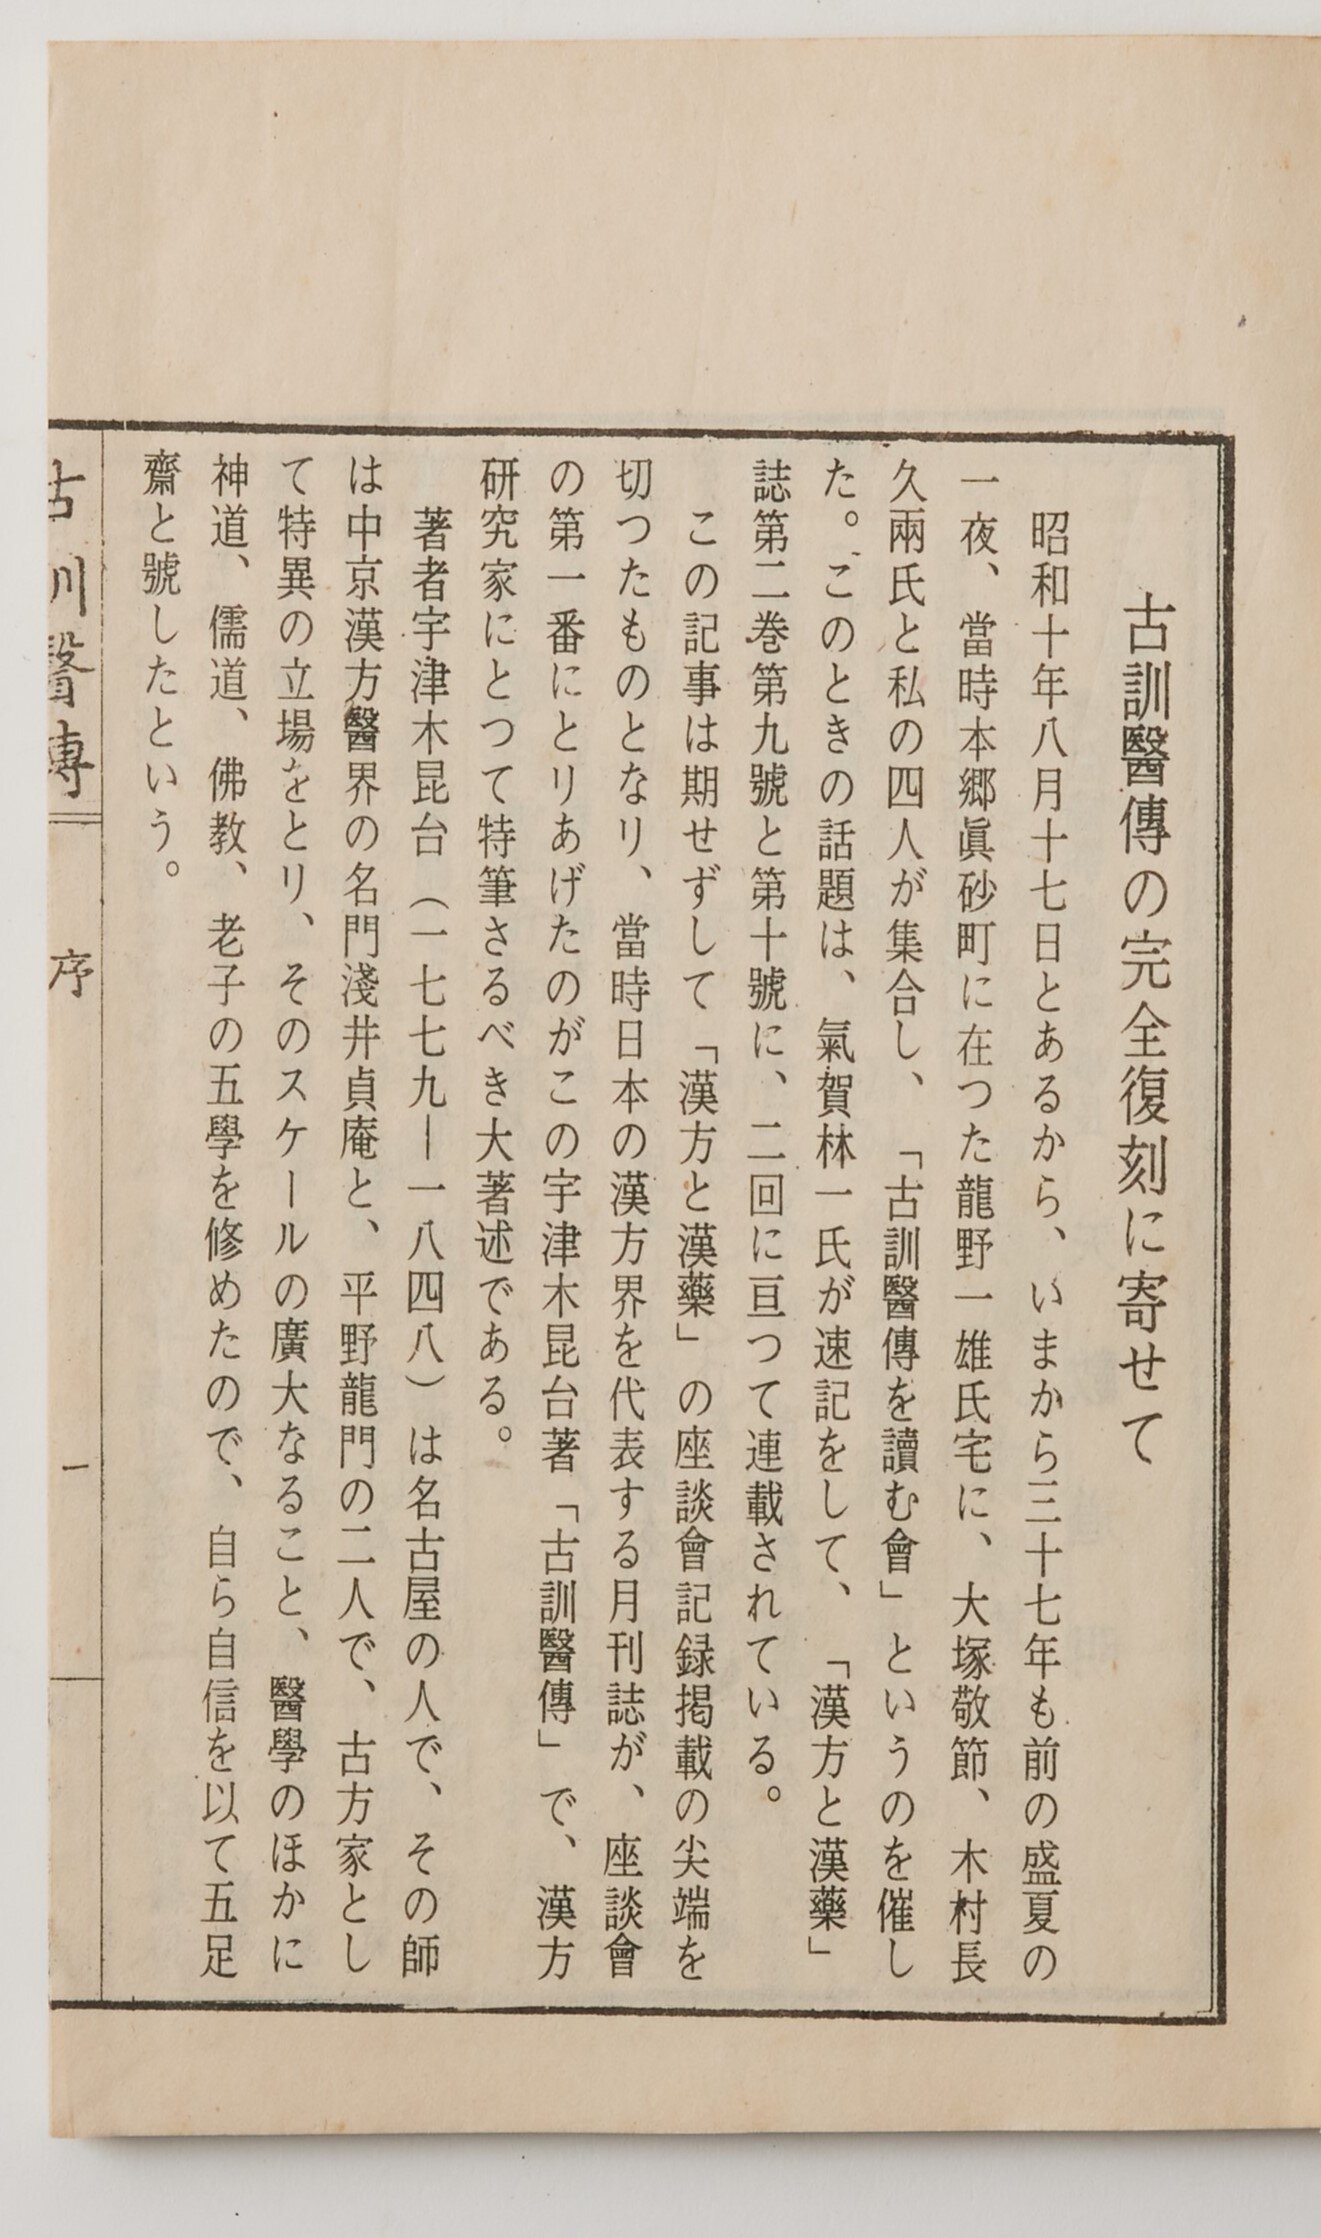 古訓醫傳の完全復刻に寄せて
昭和十年八月十七日とあるから、いまから三十七年も前の盛夏の
一夜、當時本郷眞砂町に在つた龍野一雄氏宅に、大塚敬節、木村長
久兩氏と私の四人が集合し、「古訓醫傳を讀む會」というのを催し
た。このときの話題は、氣賀林一氏が速記をして、「漢方と漢藥」
誌第二巻第九號と第十號に、二回に亘つて連載されている。
この記事は期せずして「漢方と漢藥」の座談會記録掲載の尖端を
切つたものとなリ、當時日本の漢方界を代表する月刊誌が、座談會
の第一番にとリあげたのがこの宇津木昆台著「古訓醫傳」で、漢方
研究家にとつて特筆さるべき大著述である。
著者宇津木昆台（一七七九—一八四八）は名古屋の人で、その師
は中京漢方醫界の名門淺井貞庵と、平野龍門の二人で、古方家とし
て特異の立場をとリ、そのスケールの廣大なること、醫學のほかに
神道、儒道、佛教、老子の五學を修めたので、自ら自信を以て五足
齋と號したという。
古訓醫傳 序 一